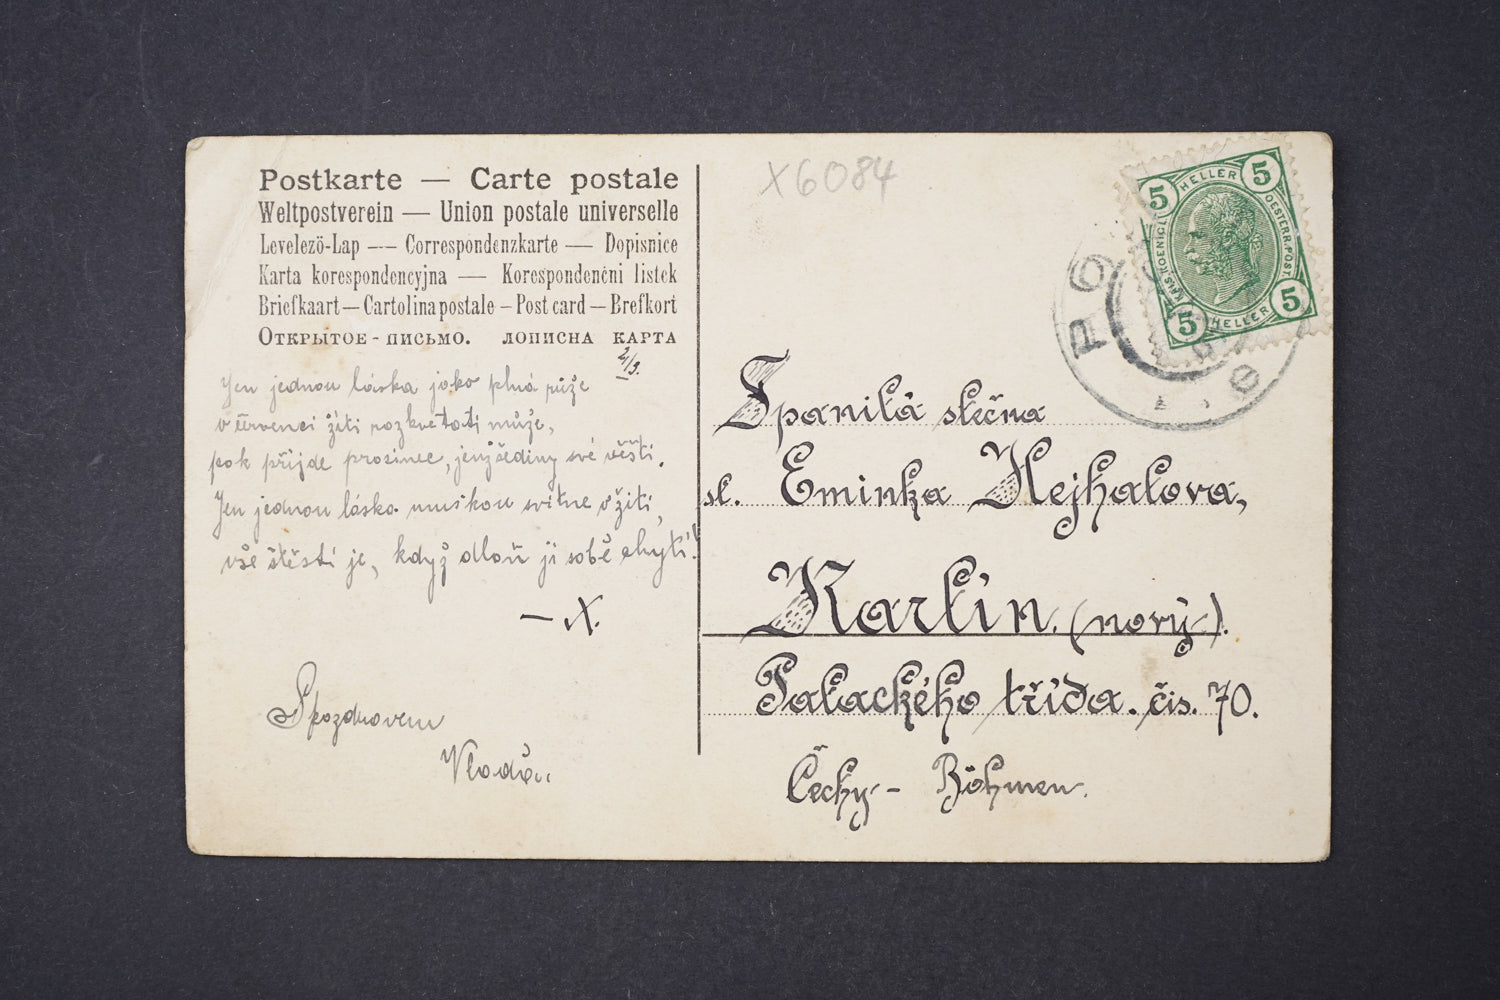 Postkarte — Carte postale
Weltpostverein — Union postale universelle
Levelezö-Lap — Correspondenzkarte — Dopisnice
Karta korespondencyjna — Korespondenčni listek
Briefkaart — Cartolina postale — Post card — Brefkort
Открытое - письмо. лописна карта
2/9.
Jen jednou láska jako plná růže
v červenci žití rozkvetati může,
pak přijde prosinec, jenž šediny své věští.
Jen jednou láska muškou svitne v žití,
vše štěstí je, když dlaň ji sobě chytí!
— X.
S pozdravem
Vláďa.
X6084
Spanilá slečna
sl. Eminka Hejhalova,
Karlín. (nový).
Palackého třída. čis. 70.
Čechy - Böhmen.
5 HELLER 5
KAIS. KOENIGL. OESTERR. POST
5 HELLER 5